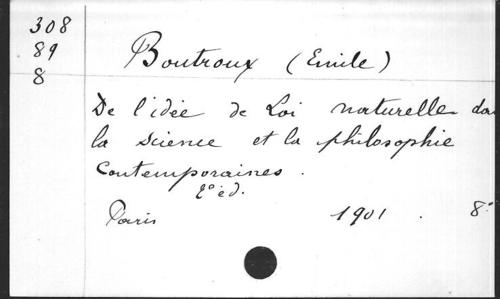 308
89
8
Boutroux (Emile)
De l'idée de Loi naturelle da
la science et la philosophie
contemporaines.
2e éd.
Paris 1901. 8°